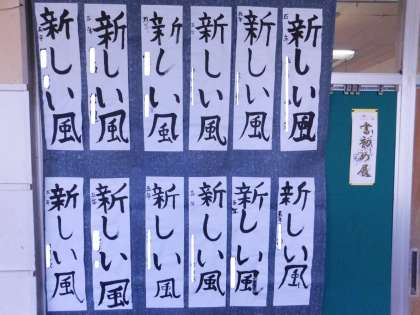 新しい風
新しい風
新しい風
新しい風
新しい風
新しい風
新しい風
新しい風
新しい風
新しい風
新しい風
新しい風
書初め展